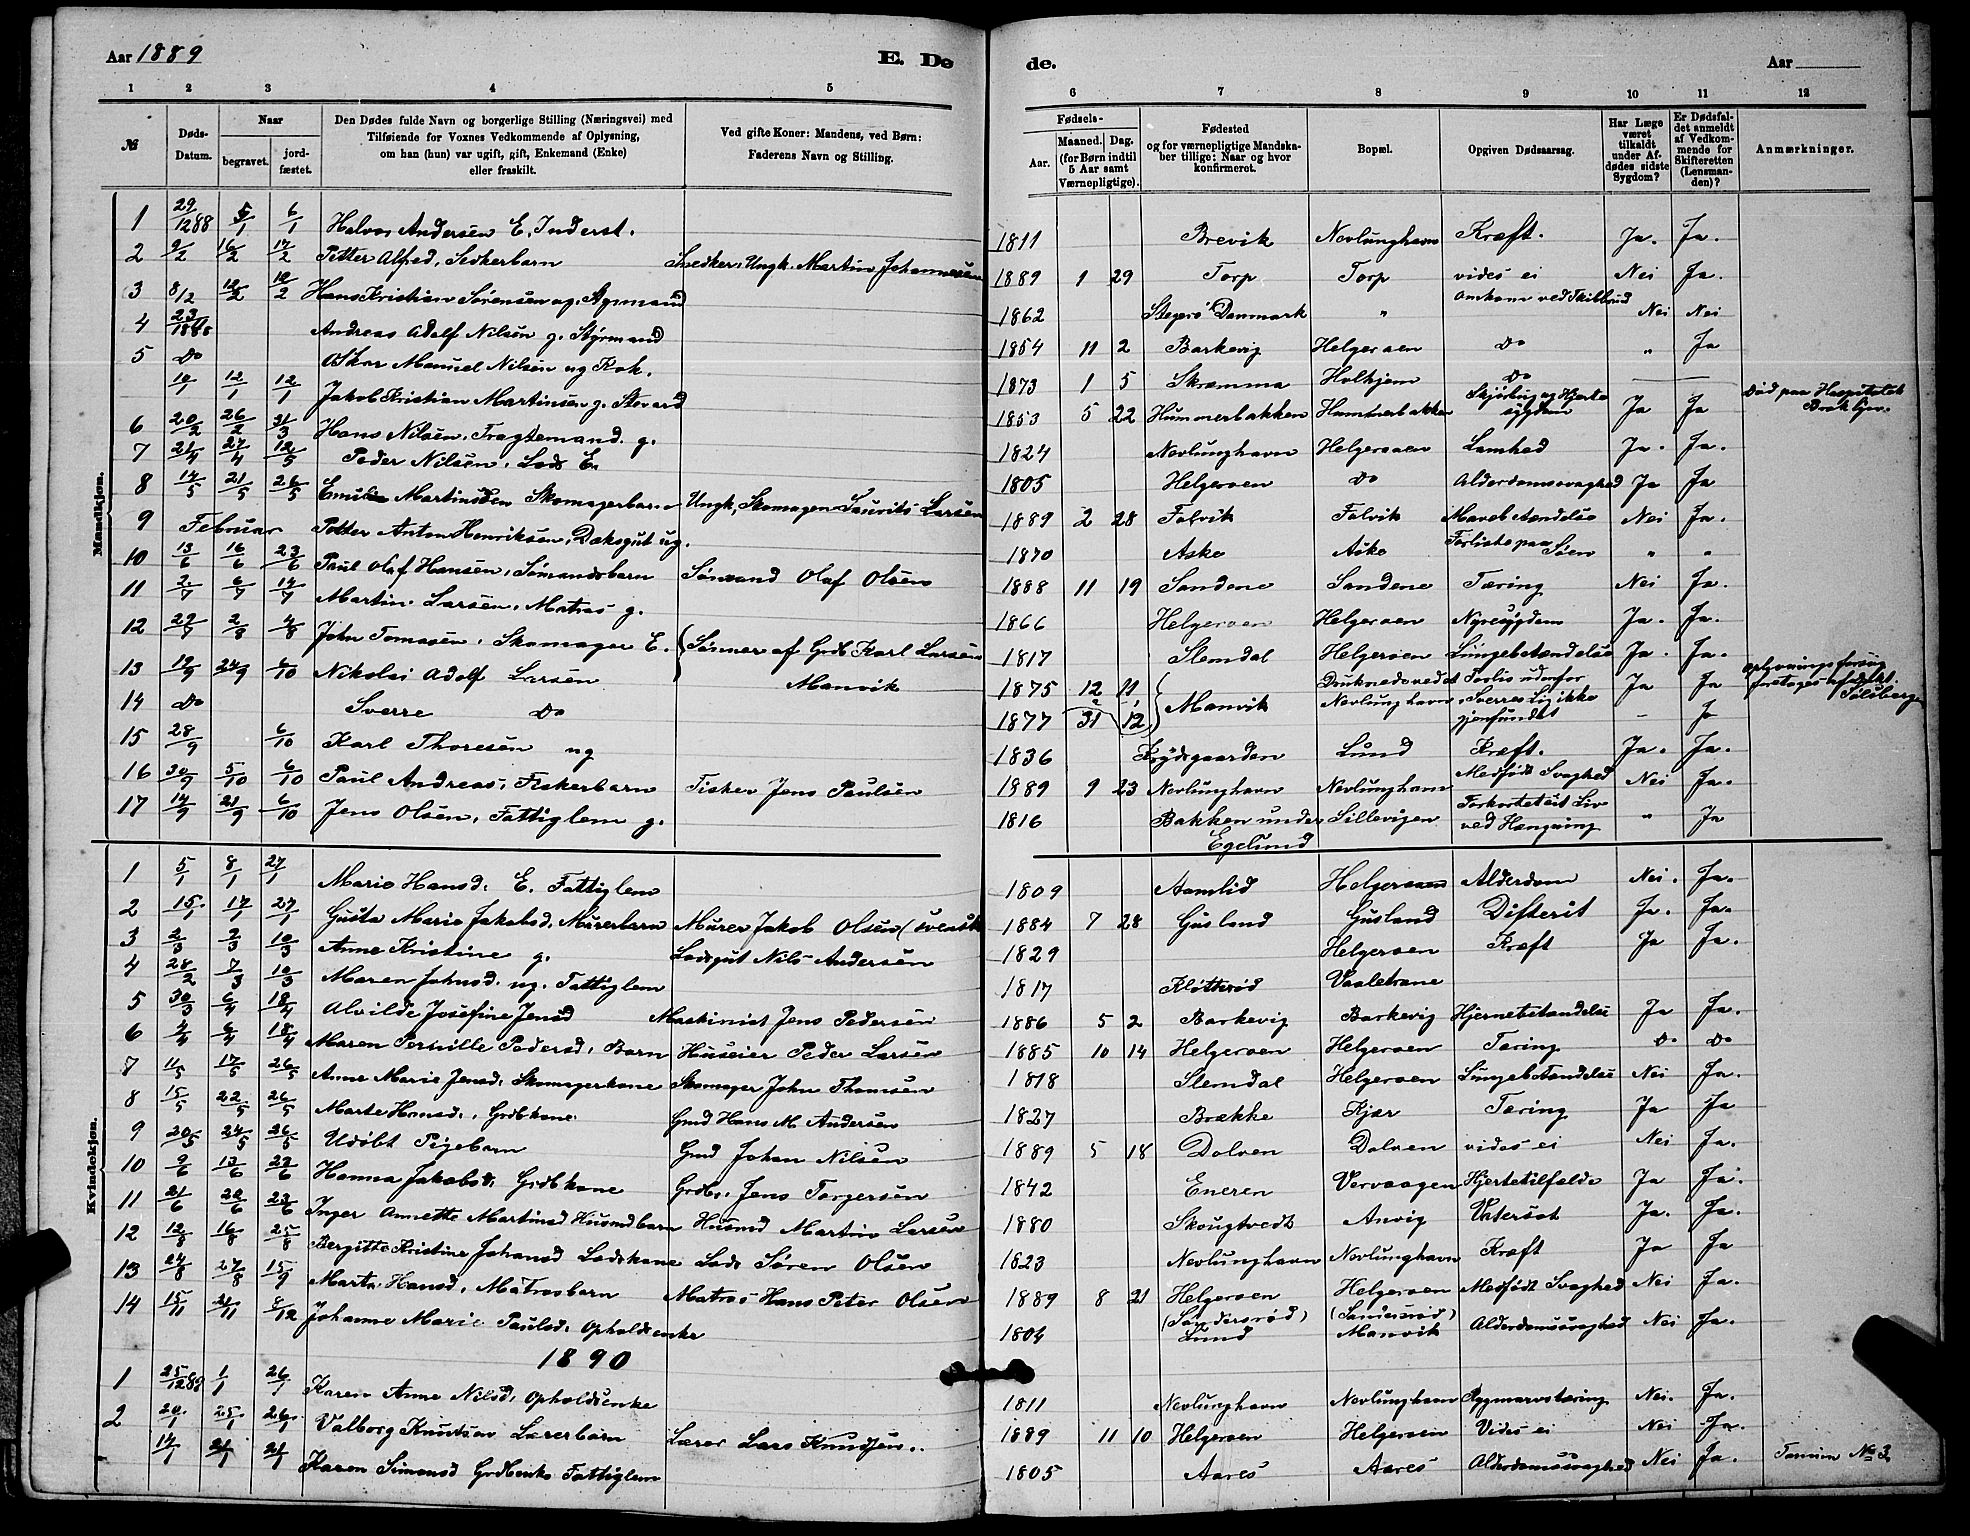 Aar 1889 E. Dø de. Aar
1 2 3 4 5 6 7 8 9 10 11 12
№ Døds-Datum. Naar begravet. jordfæstet. Den Dødes fulde Navn og borgerlige Stilling (Næringsvei) med Tilføiende for Voxnes Vedkommende af Oplysning, om han (hun) var ugift, gift, Enkemand (Enke) eller fraskilt. Ved gifte Koner: Mandens, ved Børn: Faderens Navn og Stilling. Fødsels- Aar. Maaned. Dag. (for Børn indtil 5 Aar samt Værnepligtige). Fødested og for værnepligtige Mandskaber tillige: Naar og hvor konfirmeret. Bopæl. Opgiven Dødsaarsag. Har Læge været tilkaldt under Afdødes sidste Sygdom? Er Dødsfaldet anmeldt af Vedkommende for Skifteretten (Lensmanden)? Anmærkninger.
Mandkjøn.
1 29/12 88 5/1 6/1 Halvor Andersen E. Inderst. 1811 Brevik Nevlunghavn Kræft. Ja. Ja.
2 9/2 16/2 17/2 Petter Alfred, Snedkerbarn Snedker, Ungk. Martin Johannesen 1889 1 29 Torp Torp vides ei Nei Ja.
3 8/2 12/2 Hans Kristian Sørensen ug. Styrmand 1862 Danmark " Omkom ved Skibbrud Nei Nei
4 23/ 1888 Andreas Adolf Nilsen g. Styrmand 1854 11 2 Barkevig Helgeroen Do " Ja
5 Do Oskar Manuel Nilsen ug Kok. 1873 1 5 Skramma Holkjem Do
10/1 12/1 12/1 Jakob Kristian Martinsen g. 1853 5 22 Hummerbakken Hummerbakken Skjørbug og Hjertesygdom Ja Ja Død paa Hospitalet
6 20/2 26/2 31/3 Hans Nilsen, Fragtemand. g. 1824 Nevlunghavn Helgeroen Lamhed Ja. Ja.
7 21/4 27/4 12/5 Peder Nilsen, Lods E. 1805 Helgeroen Do Alderdomssvaghed Ja Ja
8 14/5 21/5 26/5 Martinsen Skomagerbarn Ungk, Skomager Lauritz Larsen 1889 2 28 Falvik Falvik Mavebetændelse Nei Ja.
9 Februar Petter Anton Henriksen, Dæksgut ug. 1870 Aske Aske Forliste paa Søen " "
10 13/6 16/6 23/6 Paul Olaf Hansen, Sømandsbarn Sømand Olaf Olsen 1888 11 19 Sandene Sandene Tæring Nei Ja.
11 2/7 6/7 14/7 Martin Larsen, Matros g. 1866 Helgeroen Helgeroen Nyresygdom Ja. Ja.
12 29/7 2/8 4/8 John Tomasen, Skomager E. 1817 Slemdal Helgeroen Lungebetændelse Ja. Ja.
13 19/9 24/9 6/10 Nikolai Adolf Larsen Sønner af Grdb Karl Larsen 1875 12 11 Manvik Druknede ved Forlis udenfor Ja Ja Oplivningsforsøg
14 Do Sverre Do Manvik 1877 31 12 Nevlunghavn, Sverres Lig ikke gjenfundet - Ja
15 28/9 6/10 Karl Thoresen ug 1836 Lund Kræft. Ja. Ja.
16 30/9 5/10 6/10 Paul Andreas, Fiskerbarn Fisker Jens Paulsen 1889 9 23 Nevlunghavn Nevlunghavn Medfødt Svaghed Nei Ja.
17 14/9 21/9 6/10 Jens Olsen, Fattiglem g. 1816 Bakken under Sillevigen Forkortet sit Liv ved Hængning " Ja
Egelund
Kvindekjøn.
1 5/1 8/1 27/1 Marie Hansd. E. Fattiglem 1809 Aamlid Helgeroen Alderdom Nei. Ja.
2 15/1 17/1 27/1 Gusta Marie Jakobsd, Murerbarn Murer Jakob Olsen (svensk 1884 7 28 Gusland Gusland Difterit Ja. Ja.
3 2/3 7/3 10/3 Anne Kristine g. Lodsgut Nils Andersen 1829 Helgeroen Kræft Ja Ja.
4 28/2 7/3 10/3 Maren Johnsd. ug. Fattiglem 1817 Kløtterød
5 30/3 6/4 18/4 Alvilde Josefine Jensd Maskinist Jens Pedersen 1886 5 2 Barkevig Barkevig Hjernebetændelse Ja Ja.
6 2/4 6/4 18/4 Maren Pernille Pedersd, Barn Huseier Peder Larsen 1885 10 14 Helgeroen Helgeroen Tæring Do Do
7 11/5 17/5 26/5 Anne Marie Jensd, Skomagerkone Skomager John Thomsen 1818 Slemdal Helgeroen Lungebetændelse Nei Ja.
8 15/5 22/5 26/5 Marte Hansd., Grdbkone Gmd Hans M. Andersen 1827 Brække Kjær Tæring Ja Ja
9 20/5 24/5 26/5 Udøbt Pigebarn Gmd Johan Nilsen 1889 5 18 Dolven Dolven vides ei Nei Ja.
10 9/6 13/6 23/6 Hanna Jakobsd, Grdbkone Grdbr. Jens Torgersen 1842 Eneren Vervaagen Hjertetilfælde Ja Ja.
11 21/6 22/6 23/6 Inger Annette Martinsd Husmdbarn Husmd Martin Larsen 1880 Skougtvedt Anvig Vatersot Ja. Ja.
12 12/8 16/8 25/8 Bergitte Kristine Johansd Lodskone Lods Søren Olsen 1823 Nevlunghavn Nevlunghavn Kræft Ja Ja
13 24/8 27/8 15/9 Marta Hansd, Matrosbarn Matros Hans Peter Olsen 1889 8 21 Helgeroen (Søndersrød) Helgeroen (Søndersrød) Medfødt Svaghed Nei Ja.
14 15/11 21/11 8/12 Johanne Marie Paulsd. Opholdsenke 1804 Lund Manvik Alderdomssvaghed Nei Ja.
1890
1 25/12 89 1/1 26/1 Karen Anne Nilsd, Opholdsenke 1811 Nevlunghavn Nevlunghavn Rygmarvstæring Nei. Ja.
2 20/1 25/1 26/1 Valborg Knutsen Lærerbarn Lærer Lars Knudsen. 1889 11 10 Helgeroen Helgeroen Vides ei Nei Ja.
14/1 21/1 21/1 Karen Simonsd Grdbenke Fattiglem 1805 Aares Aares Alderdomssvaghed Nei Ja. No 3